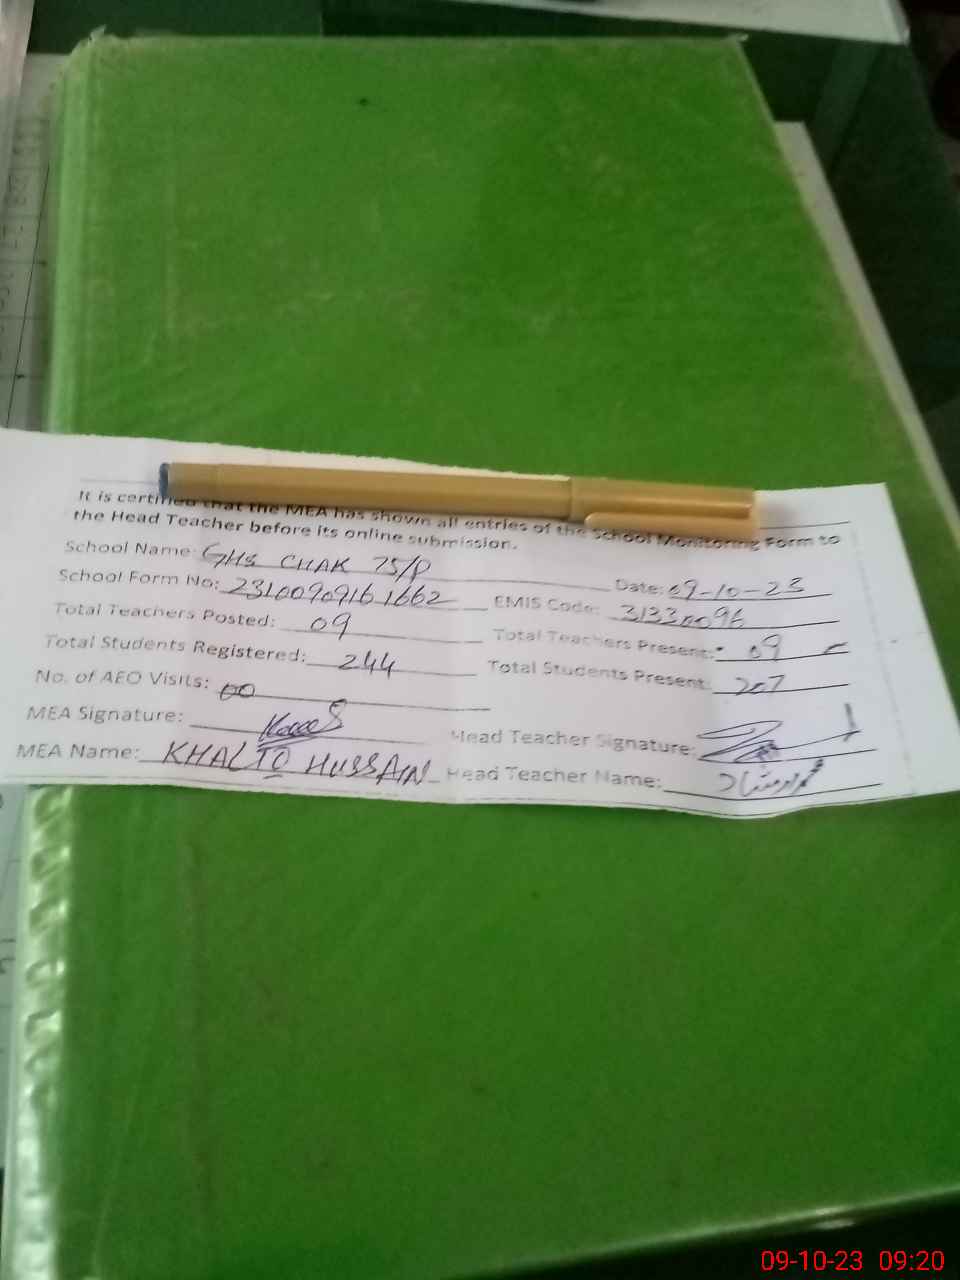 It is certified that the MEA has shown all entries of the School Monitoring Form to
the Head Teacher before its online submission.
School Name: GHS CHAK 75/P Date: 09-10-23
School Form No: 2310090916 1662 EMIS Code: 31330096
Total Teachers Posted: 09 Total Teachers Present: 09
Total Students Registered: 244 Total Students Present: 207
No. of AEO Visits: 00
MEA Signature: Head Teacher Signature:
MEA Name: HUSSAIN Head Teacher Name:
09-10-23 09:20